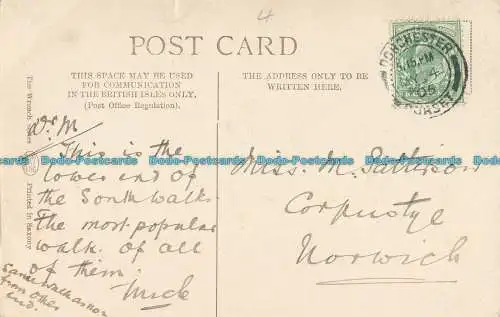 4
POST CARD
THIS SPACE MAY BE USED
FOR COMMUNICATION
IN THE BRITISH ISLES ONLY.
(Post Office Regulation).
THE ADDRESS ONLY TO BE
WRITTEN HERE.
DORCHESTER
DORSET
The Wrench Series
Printed in Saxony
Dr M
This is the
lower end of
the South walk
the most popular
walk of all
of them.
Mick
same walk as no 1
from other
end.
Miss. M. Pattison
Norwich
Postcards Postcards Postcards Postcards Postcards Postcards